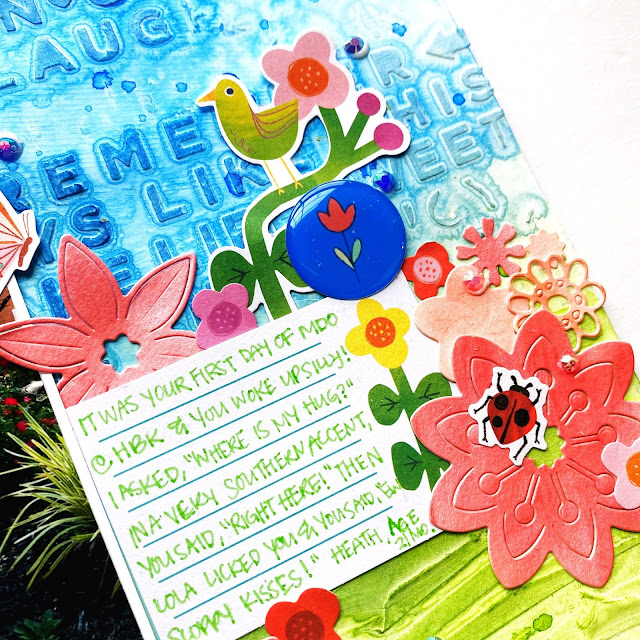 LAUG
REME R THIS
YS LIKE WEET
LIFE
IT WAS YOUR FIRST DAY OF MDO
@ HBK & YOU WOKE UP SILLY!
I ASKED, "WHERE IS MY HUG?"
IN A VERY SOUTHERN ACCENT,
YOU SAID, "RIGHT HERE!" THEN
LOLA LICKED YOU & YOU SAID, "EW
SLOPPY KISSES!" HEATH, AGE